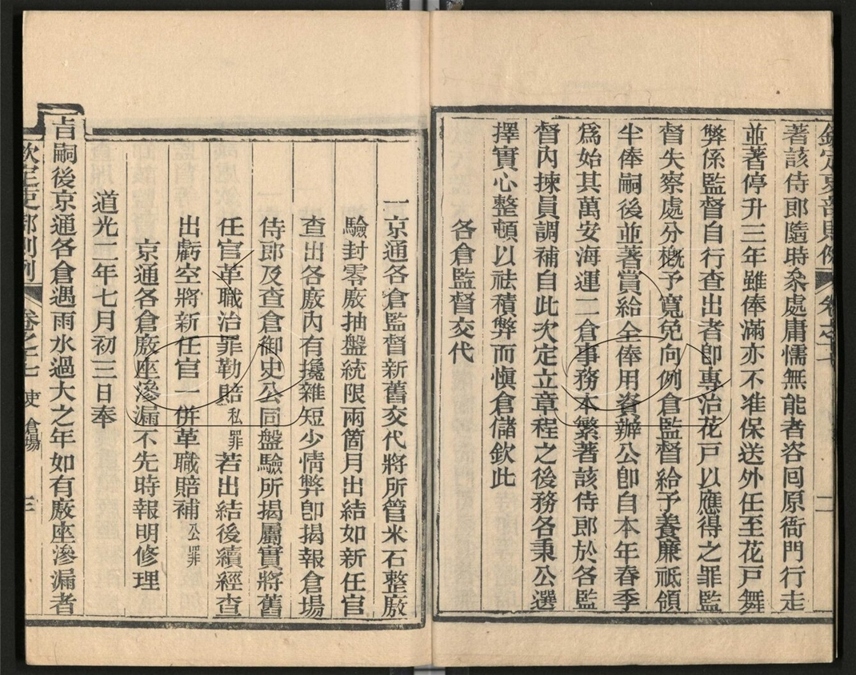 欽定吏部則例
卷之十七
二
著該侍郎隨時叅處庸懦無能者咨囘原衙門行走
並著停升三年雖俸滿亦不准保送外任至花戸舞
弊係監督自行查出者卽專治花戸以應得之罪監
督失察處分槪予寬免向例倉監督給予養廉祗領
半俸嗣後並著賞給全俸用資辦公卽自本年春季
爲始其萬安海運二倉事務本繁著該侍郎於各監
督內揀員調補自此次定立章程之後務各秉公選
擇實心整頓以祛積弊而愼倉儲欽此
各倉監督交代
一京通各倉監督新舊交代將所管米石整廒
驗封零廒抽盤統限兩箇月出結如新任官
查出各廒內有攙雜短少情弊卽揭報倉場
侍郎及查倉御史公同盤驗所揭屬實將舊
任官革職治罪勒賠私罪若出結後續經查
出虧空將新任官一併革職賠補公罪
京通各倉廒座滲漏不先時報明修理
道光二年七月初三日奉
旨嗣後京通各倉遇雨水過大之年如有廒座滲漏者
欽定吏部則例
卷之十七 吏 倉場
三